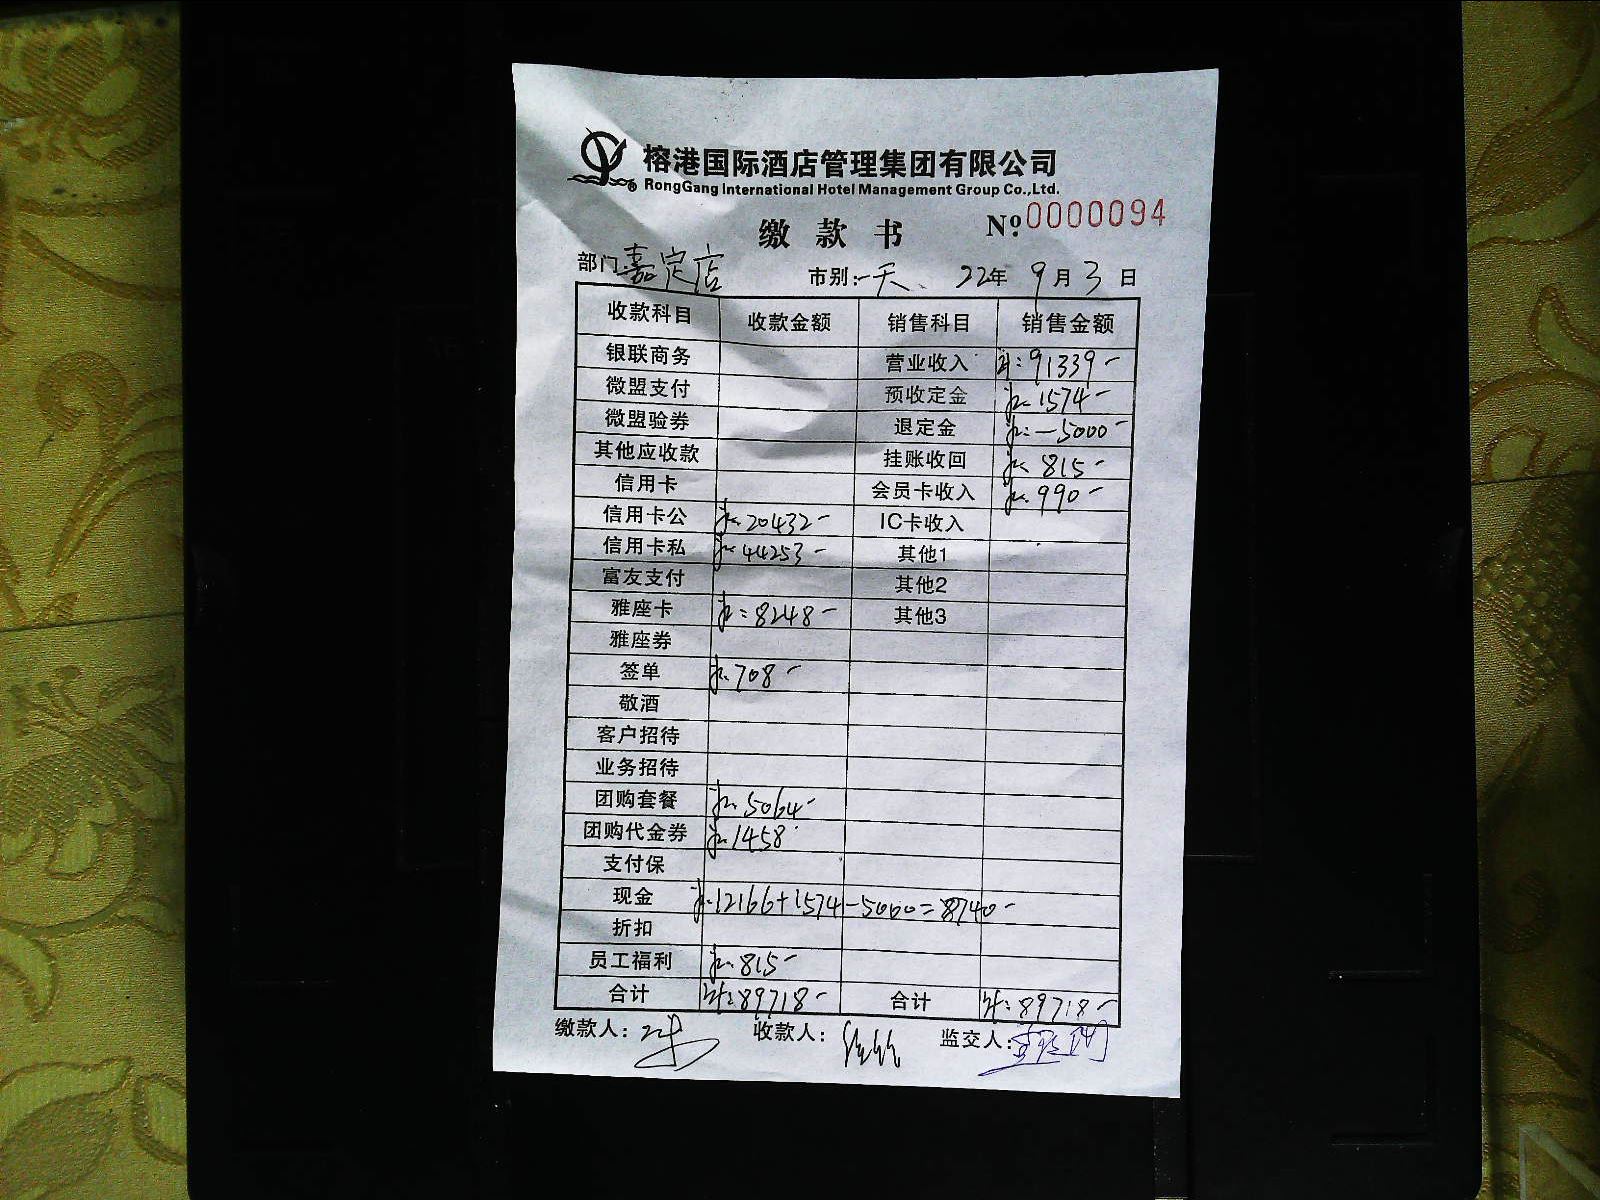 榕港国际酒店管理集团有限公司
RongGang International Hotel Management Group Co.,Ltd.
缴款书 Nº 0000094
部门 嘉定店 市别: 一天 22年 9月 3日
收款科目 收款金额 销售科目 销售金额
银联商务 营业收入 91339-
微盟支付 预收定金 1574-
微盟验券 退定金 -5000-
其他应收款 挂账收回 815-
信用卡 会员卡收入 990-
信用卡公 20432- IC卡收入
信用卡私 44253- 其他1
富友支付 其他2
雅座卡 8248- 其他3
雅座券
签单 708-
敬酒
客户招待
业务招待
团购套餐 5064-
团购代金券 1458-
支付保
现金 12166+1574-5000=8740-
折扣
员工福利 815-
合计 89718- 合计 89718-
缴款人: 收款人: 监交人: